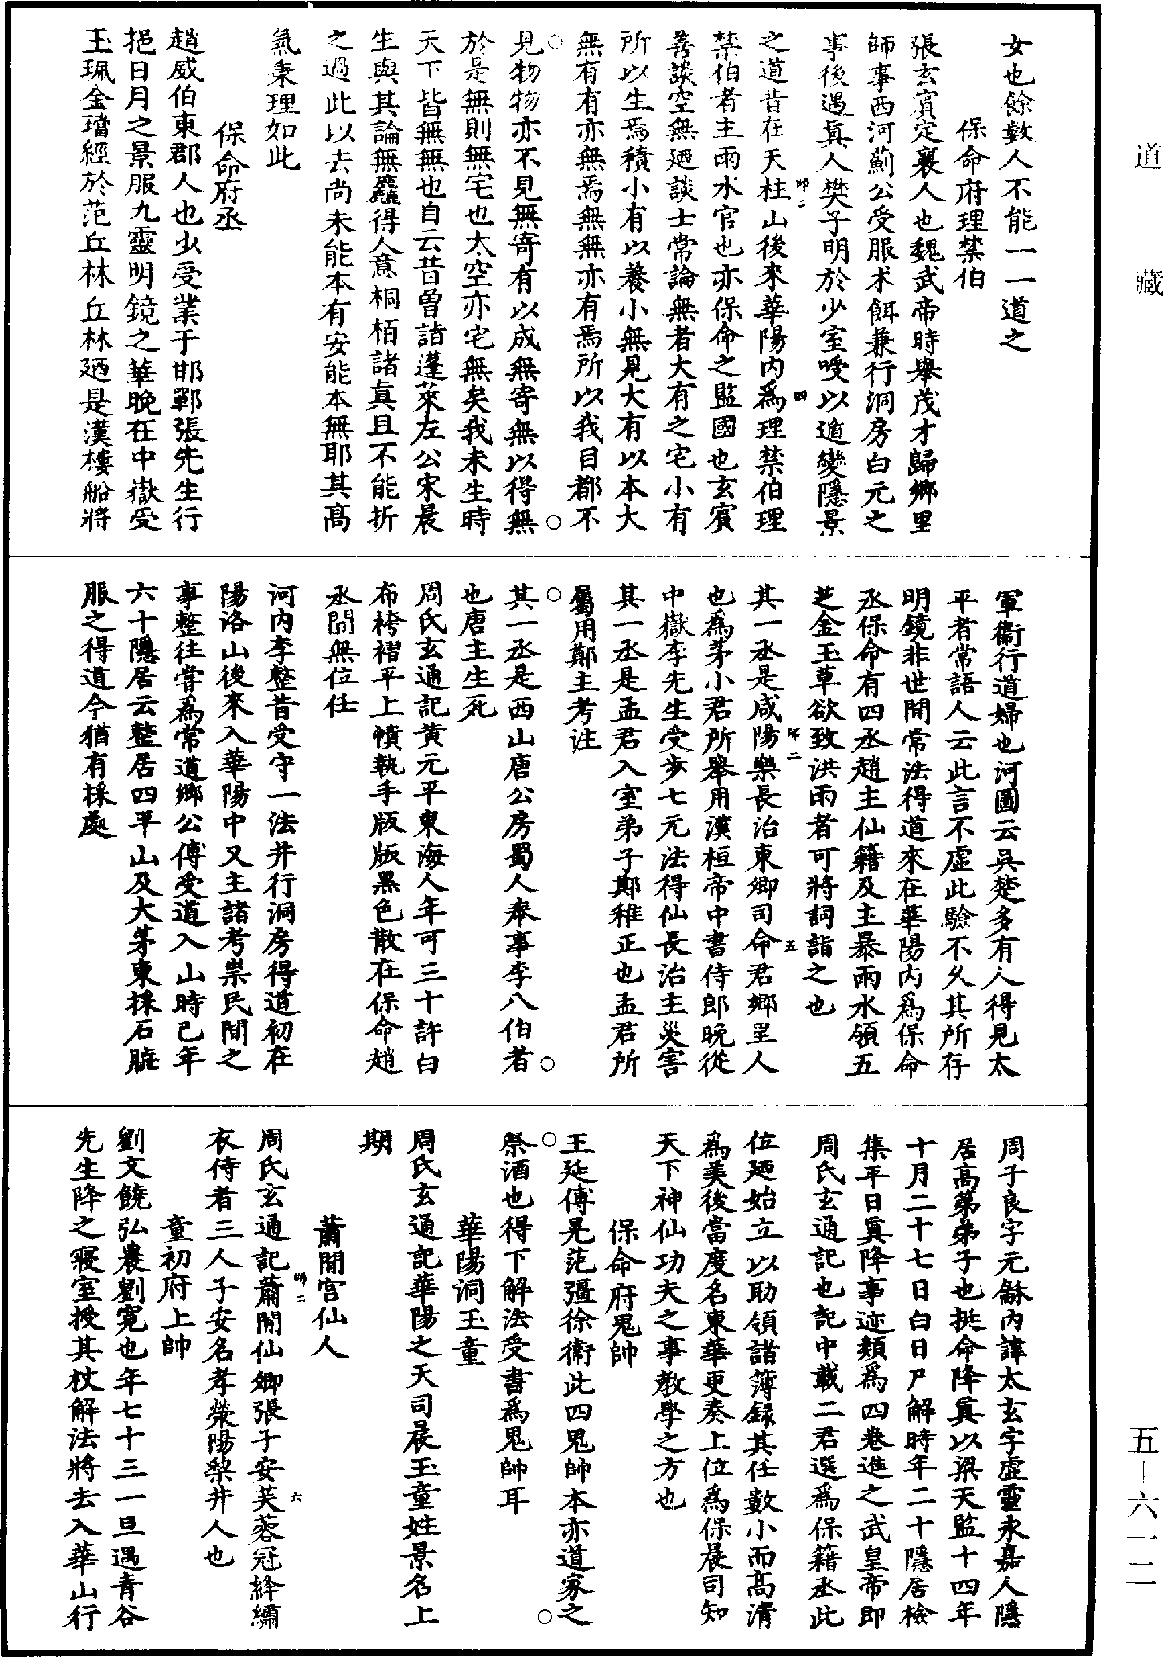 道藏
五—六一二
女也餘數人不能一一道之
保命府理禁伯
張玄賓定襄人也魏武帝時舉茂才歸鄉里
師事西河薊公受服术餌兼行洞房白元之
事後遇真人樊子明於少室嘜以遁變隱景
之道昔在天柱山後來華陽內爲理禁伯理
禁伯者主雨水官也亦保命之監國也玄賓
善談空無廼談士常論無者大有之宅小有
所以生焉積小有以養小無見大有以本大
無有有亦無焉無無亦有焉所以我目都不
見物物亦不見無寄有以成無寄無以得無
於是無則無宅也太空亦宅無矣我未生時
天下皆無無也自云昔曾詣蓬萊左公宋晨
生與其論無麤得人意桐栢諸真且不能折
之過此以去尚未能本有安能本無耶其高
氣秉理如此
保命府丞
趙威伯東郡人也少受業于邯鄲張先生行
挹日月之景服九靈明鏡之華晚在中嶽受
玉珮金璫經於范丘林丘林廼是漢樓船將
軍衞行道婦也河圖云吳楚多有人得見太
平者常語人云此言不虛此驗不久其所存
明鏡非世間常法得道來在華陽內爲保命
丞保命有四丞趙主仙籍及主暴雨水領五
芝金玉草欲致洪雨者可將詞詣之也
其一丞是咸陽樂長治東卿司命君鄉里人
也爲茅小君所舉用漢桓帝中書侍郎晚從
中嶽李先生受步七元法得仙長治主災害
其一丞是孟君入室弟子鄭稚正也孟君所
屬用鄭主考注
其一丞是西山唐公房蜀人奉事李八伯者
也唐主生死
周氏玄通記黃元平東海人年可三十許白
布袴褶平上幘執手版版黑色散在保命趙
丞間無位任
河內李整昔受守一法并行洞房得道初在
陽洛山後來入華陽中又主諸考祟民間之
事整往嘗爲常道鄉公傅受道入山時已年
六十隱居云整居四平山及大茅東採石腦
服之得道今猶有採處
周子良字元龢內諱太玄字虛靈永嘉人隱
居高第弟子也挻命降真以梁天監十四年
十月二十七日白日尸解時年二十隱居檢
集平日真降事迹類爲四卷進之武皇帝即
周氏玄通記也記中載二君選爲保籍丞此
位廼始立以助領諸簿録其任數小而高清
爲美後當度名東華更奏上位爲保晨司知
天下神仙功夫之事教學之方也
保命府鬼帥
王延傅晃范彊徐衞此四鬼帥本亦道家之
祭酒也得下解法受書爲鬼帥耳
華陽洞玉童
周氏玄通記華陽之天司晨玉童姓景名上
期
蕭閒宮仙人
周氏玄通記蕭閒仙卿張子安芙蓉冠絳繡
衣侍者三人子安名孝滎陽梨井人也
童初府上帥
劉文饒弘農劉寬也年七十三一旦遇青谷
先生降之寢室授其杖解法將去入華山行